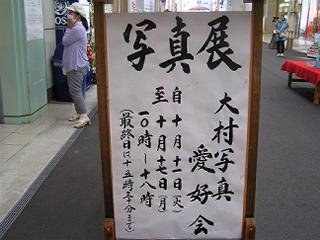 写真展
大村写真
愛好会
自 十月十一日(火)
至 十月十七日(月)
一〇時〜十八時
(最終日は十五時三十分まで)